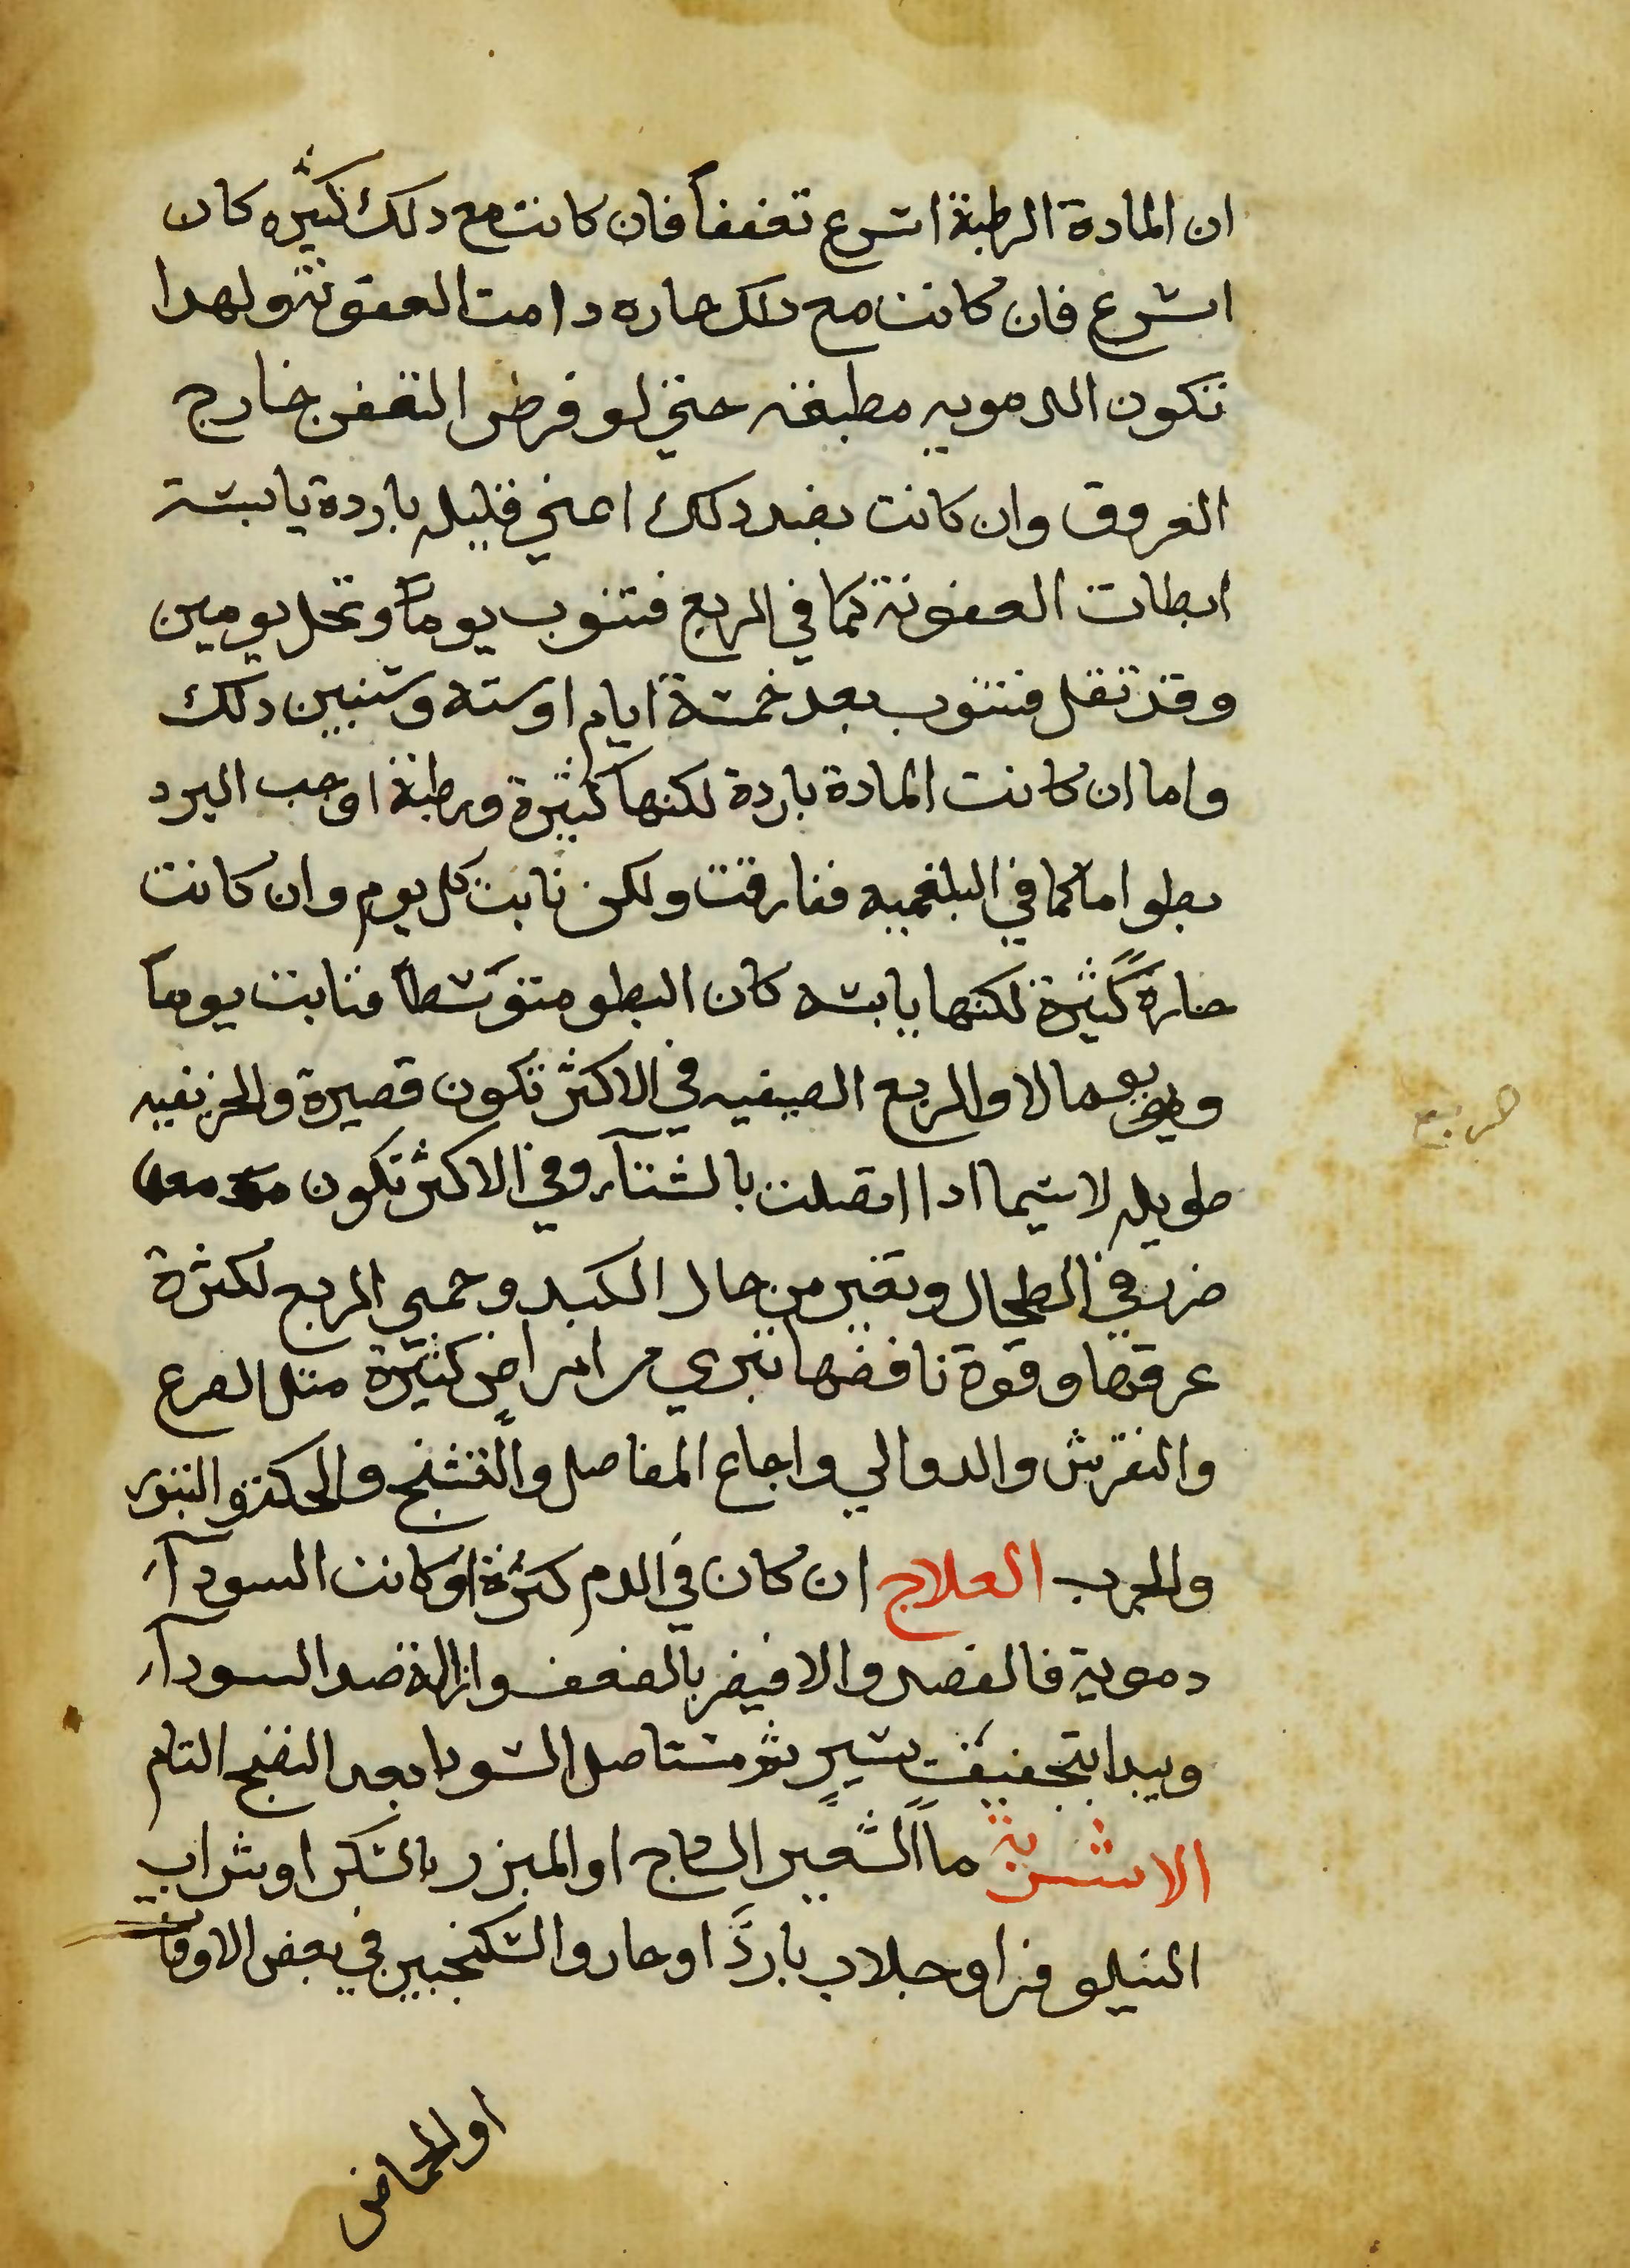 ان المادة الرطبة اسرع تعفنا فان كانت مع دلك كثيره كان
اسرع فان كانت مع دلك حاره دامت العفونة ولهدا
تكون الدمويه مطبقه حتي لو فرض التعفن خارج
العروق وان كانت بضد دلك اعني قليله باردة يابسة
ابطات العفونة كما في الربع فتنوب يوماً وتخل يومين
وقد تقل فتنوب بعد خمسة ايام او سته وستبين دلك
واما ان كانت المادة باردة لكنها كثيرة ورطبة اوجب البرد
بطوا ما كما في البلغميه ففارقت ولكن نابت كل يوم وان كانت
حارة كثيرة لكنها يابسه كان البطو متوسطاً فنابت يوماً
ويوما لا والربع الصيفيه في الاكثر تكون قصيرة والخريفيه
طويله لاسيما ادا اتصلت بالشتآء وفي الاكثر تكون معها
ضرر في الطحال وتغير من حال الكبد وحمي الربع لكثرة
عرقها وقوة نافضها تبري من امراض كثيرة متل الصرع
والنقرس والدوالي واجاع المفاصل والتشنج والحكة والبثور
والجرب العلاج ان كان في الدم كثرة او كانت السودآء
دموية فالفصد والا فيضر بالضعف وازالة ضد السودآء
ويبدا بتجفيف يسير ثم تستاصل السودا بعد النضج التام
الاشربة مآ الشعير الساج او المبزر بالسكر او شراب
النيلوفر او جلاب بارد او حار والسكنجبين في بعض الاوقات
او الحماض
الربع